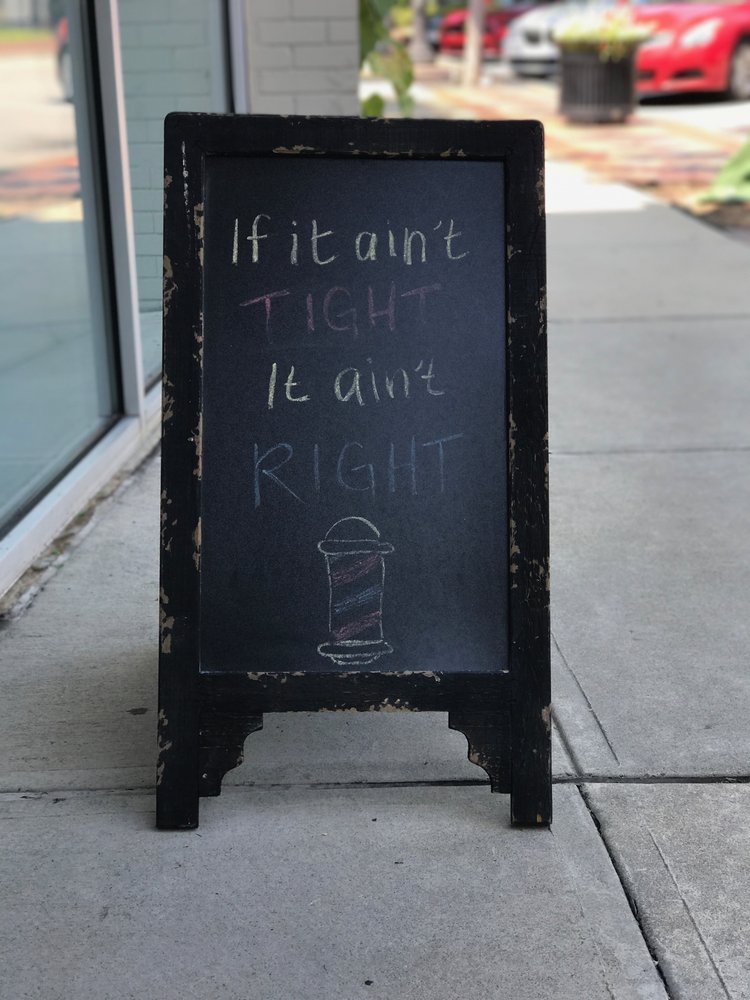 If it ain't
TIGHT
It ain't
RIGHT